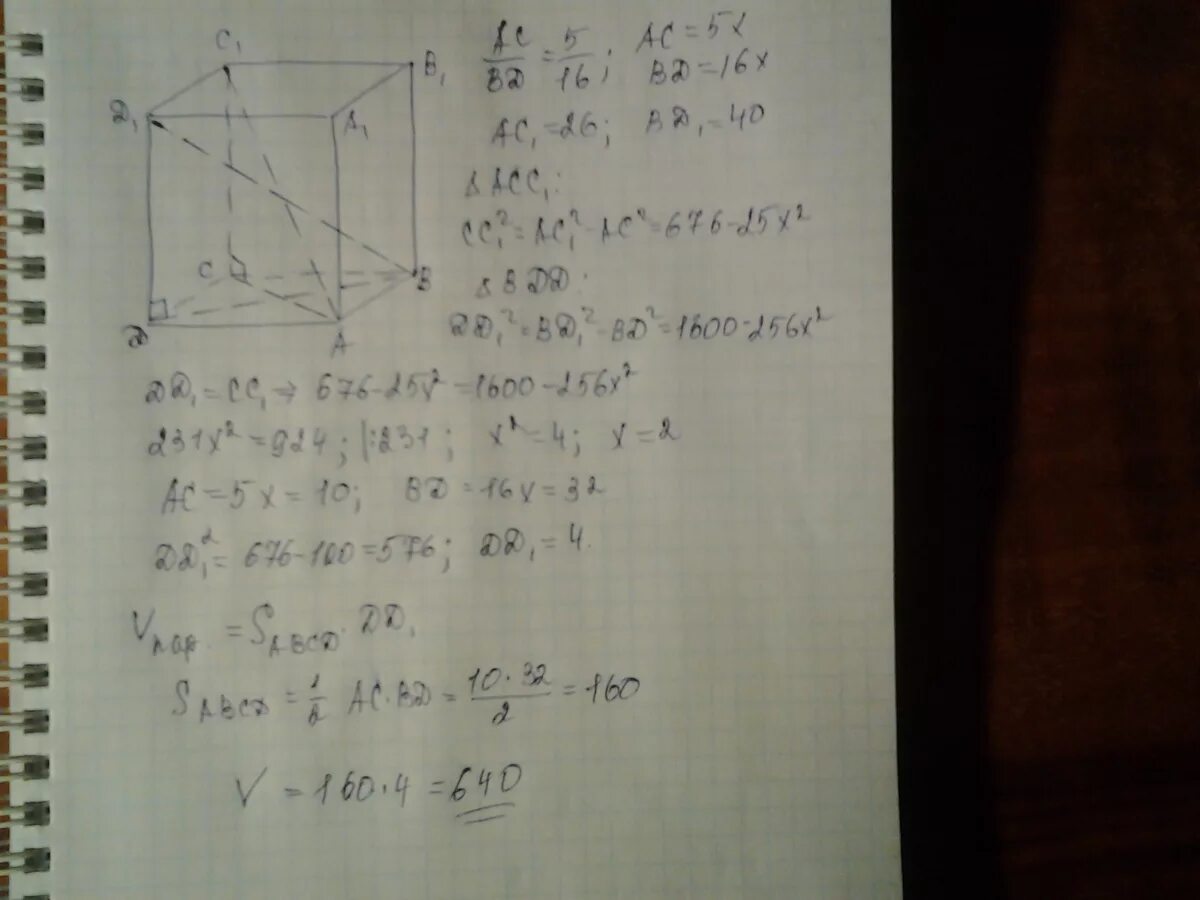 C₁
B₁
D₁
A₁
C
B
D
A
AC/BD = 5/16; AC = 5x
BD = 16x
AC₁ = 26; BD₁ = 40
△ACC₁:
CC₁² = AC₁² - AC² = 676 - 25x²
△BDD:
DD₁² = BD₁² - BD² = 1600 - 256x²
DD₁ = CC₁ → 676 - 25x² = 1600 - 256x²
231x² = 924; |:231; x² = 4; x = 2
AC = 5x = 10; BD = 16x = 32
DD₁² = 676 - 100 = 576; DD₁ = 4.
Vпар. = S ABCD · DD₁
S ABCD = 1/2 AC · BD = 10 · 32 / 2 = 160
V = 160 · 4 = 640